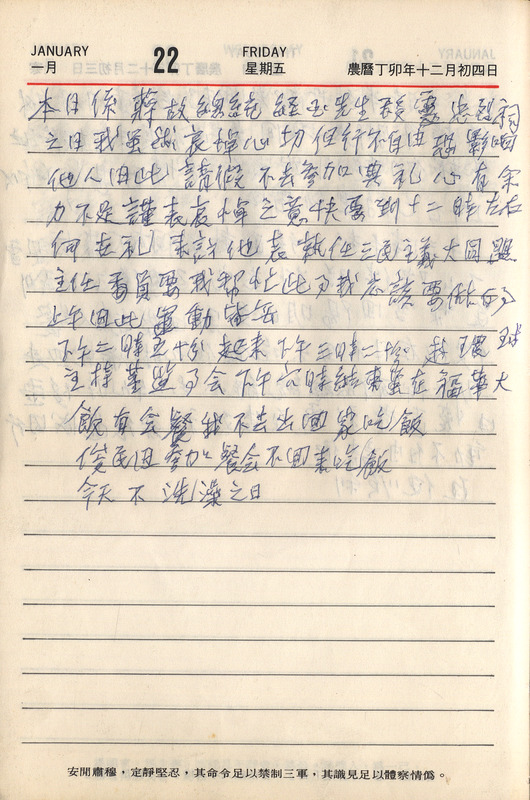 JANUARY 22 FRIDAY
一月 星期五 農曆丁卯年十二月初四日
本日係蔣故總統經國先生移靈忠烈祠
之日我虽然哀悼心切但行不自由恐影响
他人因此請假不去參加典礼心有余
力不足謹表哀悼之意快要到十二時左右
何在礼来訪他表執任三民主義大同盟
主任委員要我帮忙此乃我应該要做的
上午因此運動
下午二時五十分起来下午三時二十分赴環球
主持董監事会下午六時結束董在福華大
飯有会餐我不去出回家吃飯
俊民因參加餐会不回来吃飯
今天不洗澡之日
安閒肅穆，定靜堅忍，其命令足以禁制三軍，其識見足以體察情僞。